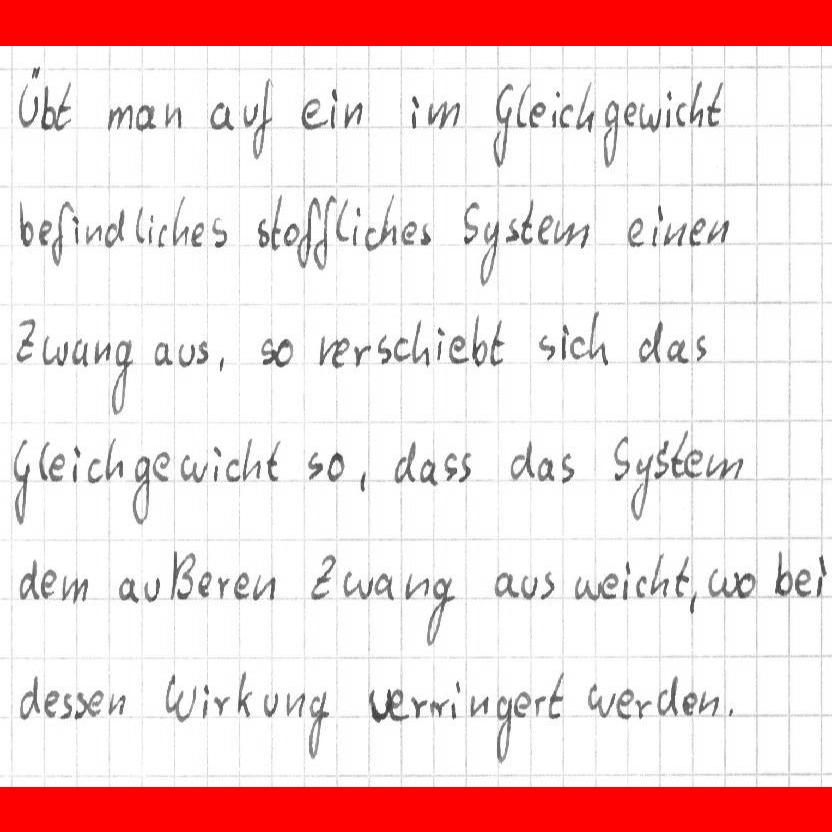 Übt man auf ein im Gleichgewicht
befindliches stoffliches System einen
Zwang aus, so verschiebt sich das
Gleichgewicht so, dass das System
dem außeren Zwang ausweicht, wobei
dessen Wirkung verringert werden.